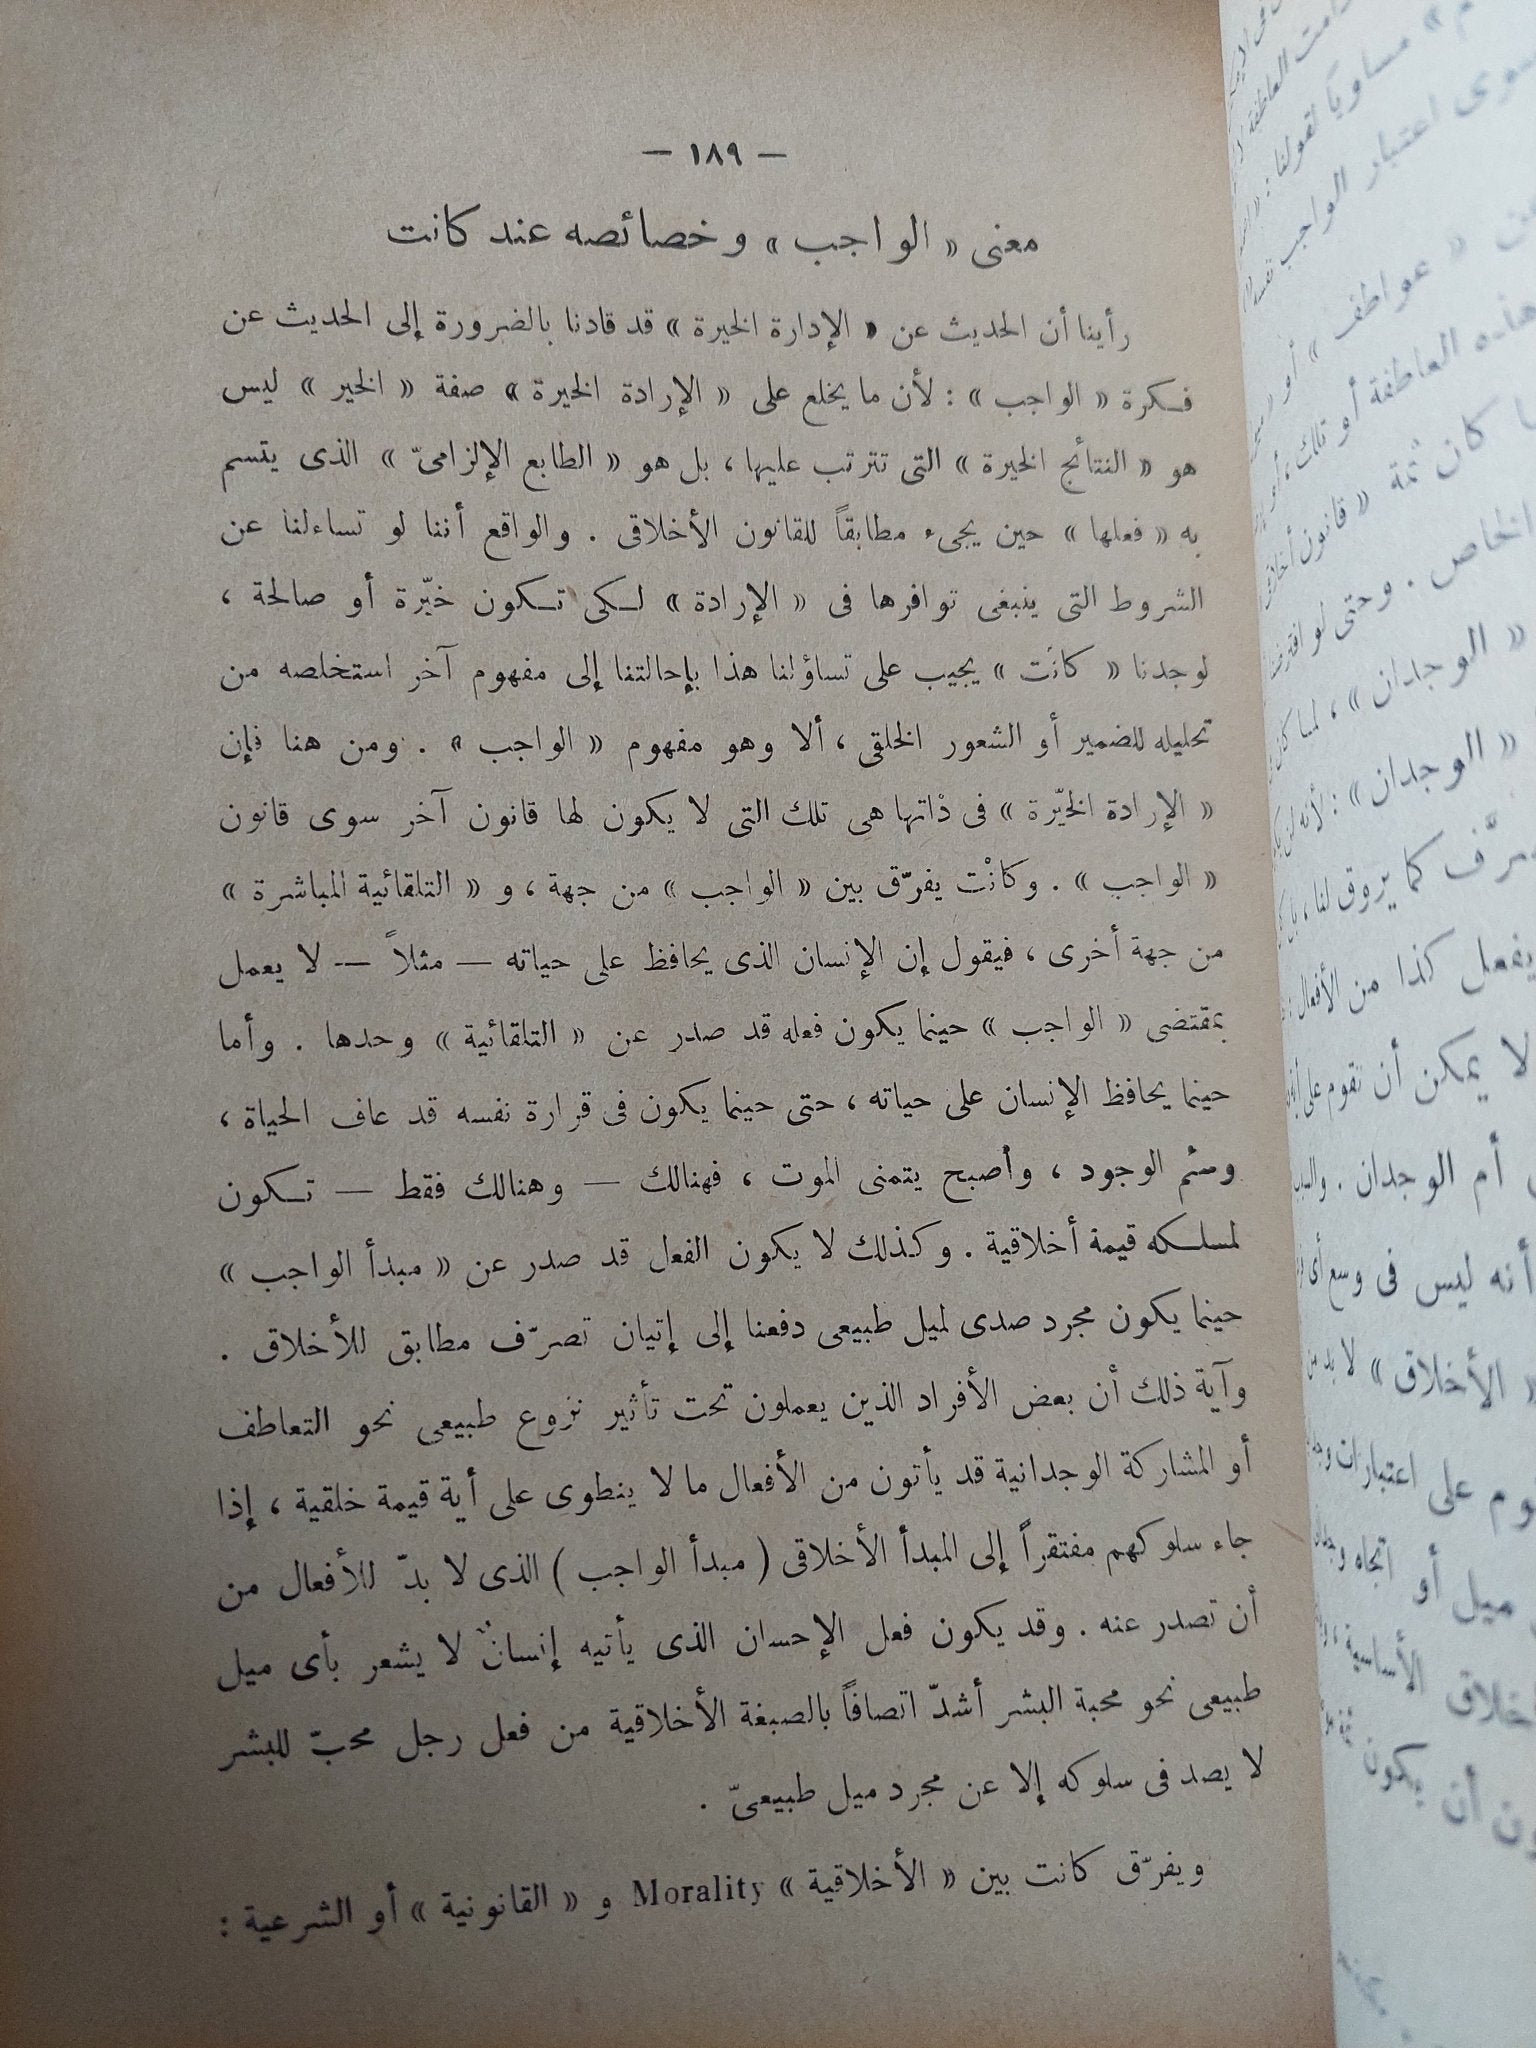 — ١٨٩ —
معنى « الواجب » وخصائصه عند كانت
رأينا أن الحديث عن « الإدارة الخيرة » قد قادنا بالضرورة إلى الحديث عن
فكرة « الواجب » : لأن ما يخلع على « الإرادة الخيرة » صفة « الخير » ليس
هو « النتائج الخيرة » التى تترتب عليها ، بل هو « الطابع الإلزامىّ » الذى يتسم
به « فعلها » حين يجىء مطابقاً للقانون الأخلاقى . والواقع أننا لو تساءلنا عن
الشروط التى ينبغى توافرها فى « الإرادة » لكى تكون خيّرة أو صالحة ،
لوجدنا « كانْت » يجيب على تساؤلنا هذا بإحالتنا إلى مفهوم آخر استخلصه من
تحليله للضمير أو الشعور الخلقى ، ألا وهو مفهوم « الواجب » . ومن هنا فإن
« الإرادة الخيّرة » فى ذاتها هى تلك التى لا يكون لها قانون آخر سوى قانون
« الواجب » . وكانْت يفرّق بين « الواجب » من جهة ، و « التلقائية المباشرة »
من جهة أخرى ، فيقول إن الإنسان الذى يحافظ على حياته — مثلاً — لا يعمل
بمقتضى « الواجب » حينما يكون فعله قد صدر عن « التلقائية » وحدها . وأما
حينما يحافظ الإنسان على حياته ، حتى حينما يكون فى قرارة نفسه قد عاف الحياة ،
وسئم الوجود ، وأصبح يتمنى الموت ، فهنالك — وهنالك فقط — تكون
لمسلكه قيمة أخلاقية . وكذلك لا يكون الفعل قد صدر عن « مبدأ الواجب »
حينما يكون مجرد صدى لميل طبيعى دفعنا إلى إتيان تصرّف مطابق للأخلاق .
وآية ذلك أن بعض الأفراد الذين يعملون تحت تأثير نزوع طبيعى نحو التعاطف
أو المشاركة الوجدانية قد يأتون من الأفعال ما لا ينطوى على أية قيمة خلقية ، إذا
جاء سلوكهم مفتقراً إلى المبدأ الأخلاقى ( مبدأ الواجب ) الذى لا بدّ للأفعال من
أن تصدر عنه . وقد يكون فعل الإحسان الذى يأتيه إنسانٌ لا يشعر بأى ميل
طبيعى نحو محبة البشر أشدّ اتصافاً بالصبغة الأخلاقية من فعل رجل محبّ للبشر
لا يصد فى سلوكه إلا عن مجرد ميل طبيعىّ .
ويفرّق كانت بين « الأخلاقية » Morality و « القانونية » أو الشرعية :